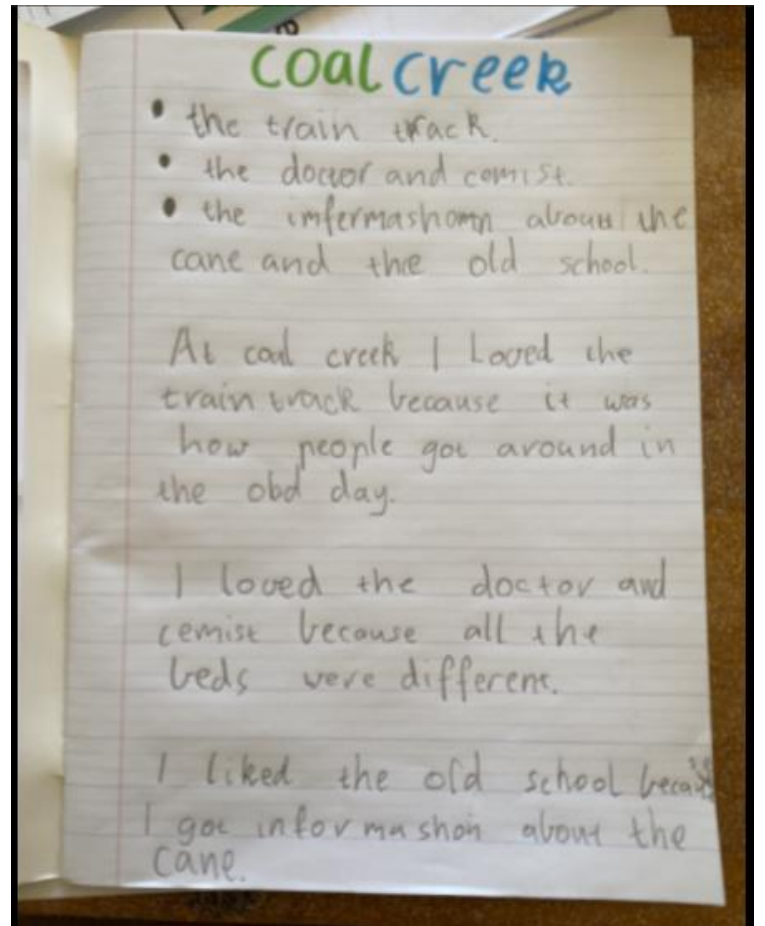 coal creek
• the train track.
• the doctor and comist.
• the imfermashomn about the
cane and the old school.
At coal creek I Loved the
train track because it was
how people got around in
the obd day.
I loved the doctor and
cemist because all the
beds were different.
I liked the old school because
I got informashon about the
cane.